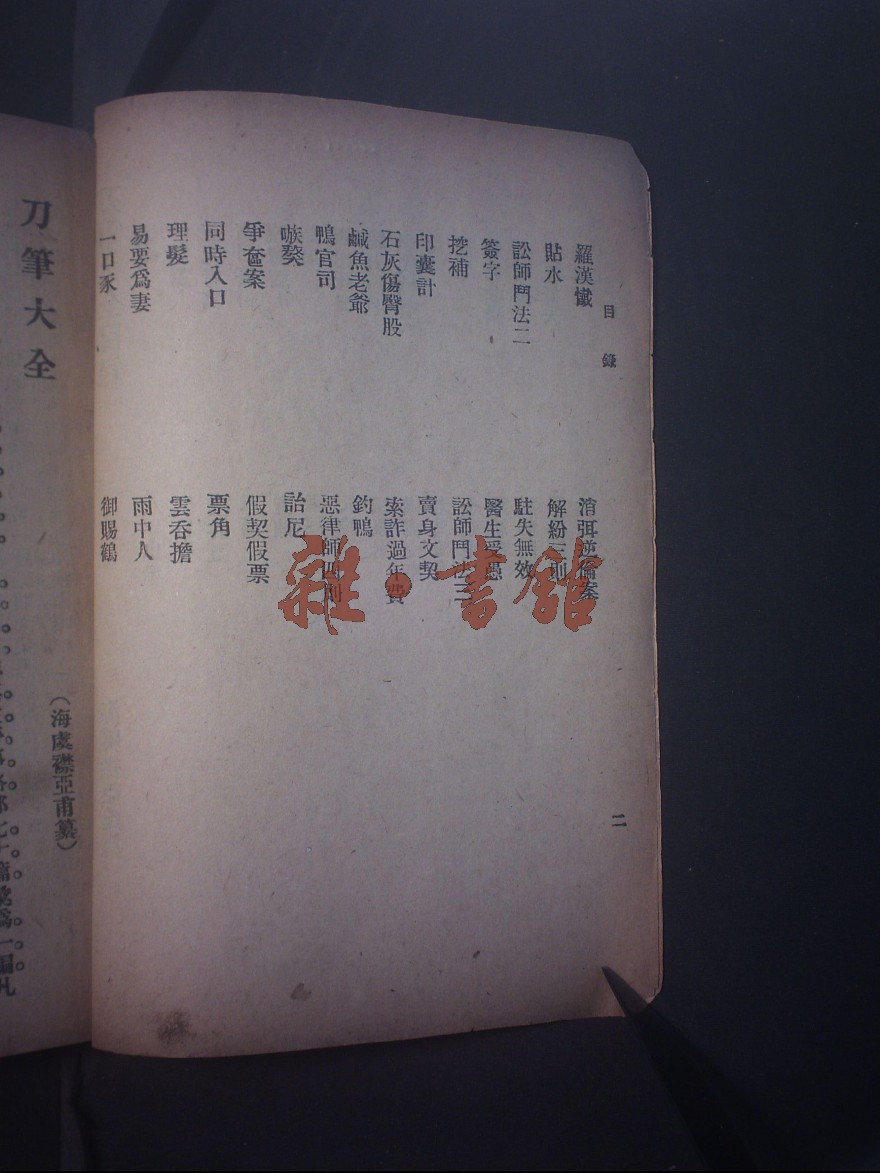 目錄
羅漢懺
消弭逆倫案
貼水
解紛三則
訟師鬥法二
駐失無效
簽字
醫生受愚
挖補
訟師鬥法三
印囊計
賣身文契
石灰傷臀股
索詐過年費
鹹魚老爺
釣鴨
鴨官司
惡律師四則
嗾獒
詒尼
爭奩案
假契假票
同時入口
票角
理髮
雲呑擔
易要爲妻
雨中人
一口豕
御賜鶴
二
刀筆大全
(海虞襟亞甫纂)
雜·書館